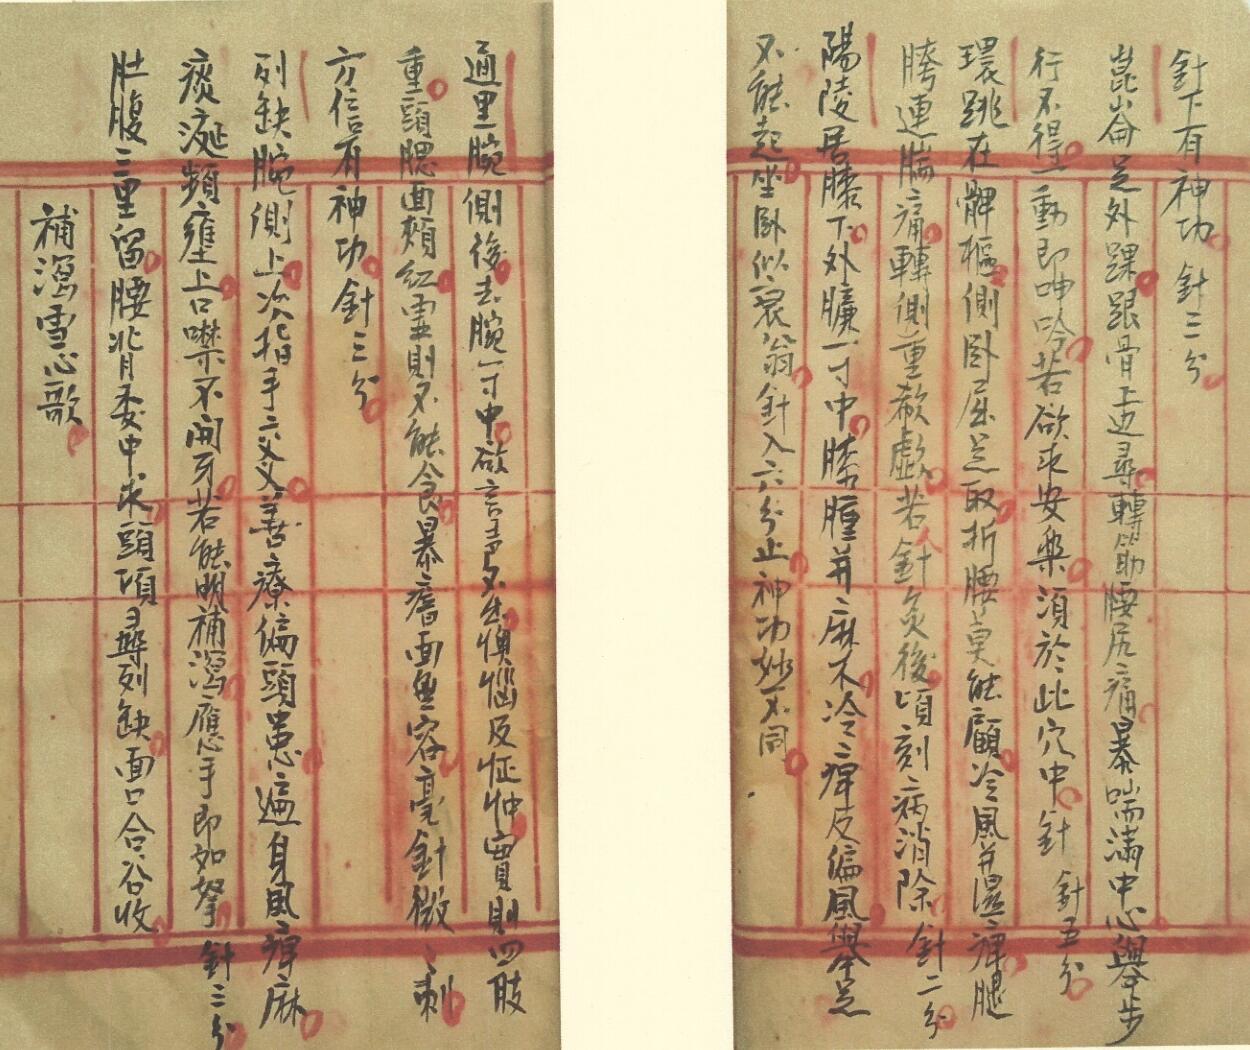 針下有神功 針三分
崑崙足外踝跟骨上边尋轉筋腰尻痛暴喘滿中心舉步
行不得一動即呻吟若欲求安樂須於此穴中針 針五分
環跳在髀樞側卧屈足取折腰莫能顧冷風并濕痹腿
胯連腨痛轉側重欷歔若人針灸後頃刻病消除 針二分
陽陵居膝下外臁一寸中膝腫并麻木冷痹及偏風舉足
不能起坐卧似衰翁針入六分止神功妙不同
通里腕側後去腕一寸中欲言声不出懊惱及怔忡實則四肢
重頭腮面頰紅虛則不能食暴瘖面無容毫針微々刺
方信有神功 針三分
列缺腕側上次指手交叉善療偏頭患遍身風痹麻
痰涎頻壅上口噤不開牙若能明補瀉應手即如拏 針三分
肚腹三里留腰背委中求頭項尋列缺面口合谷收
補瀉雪心歌